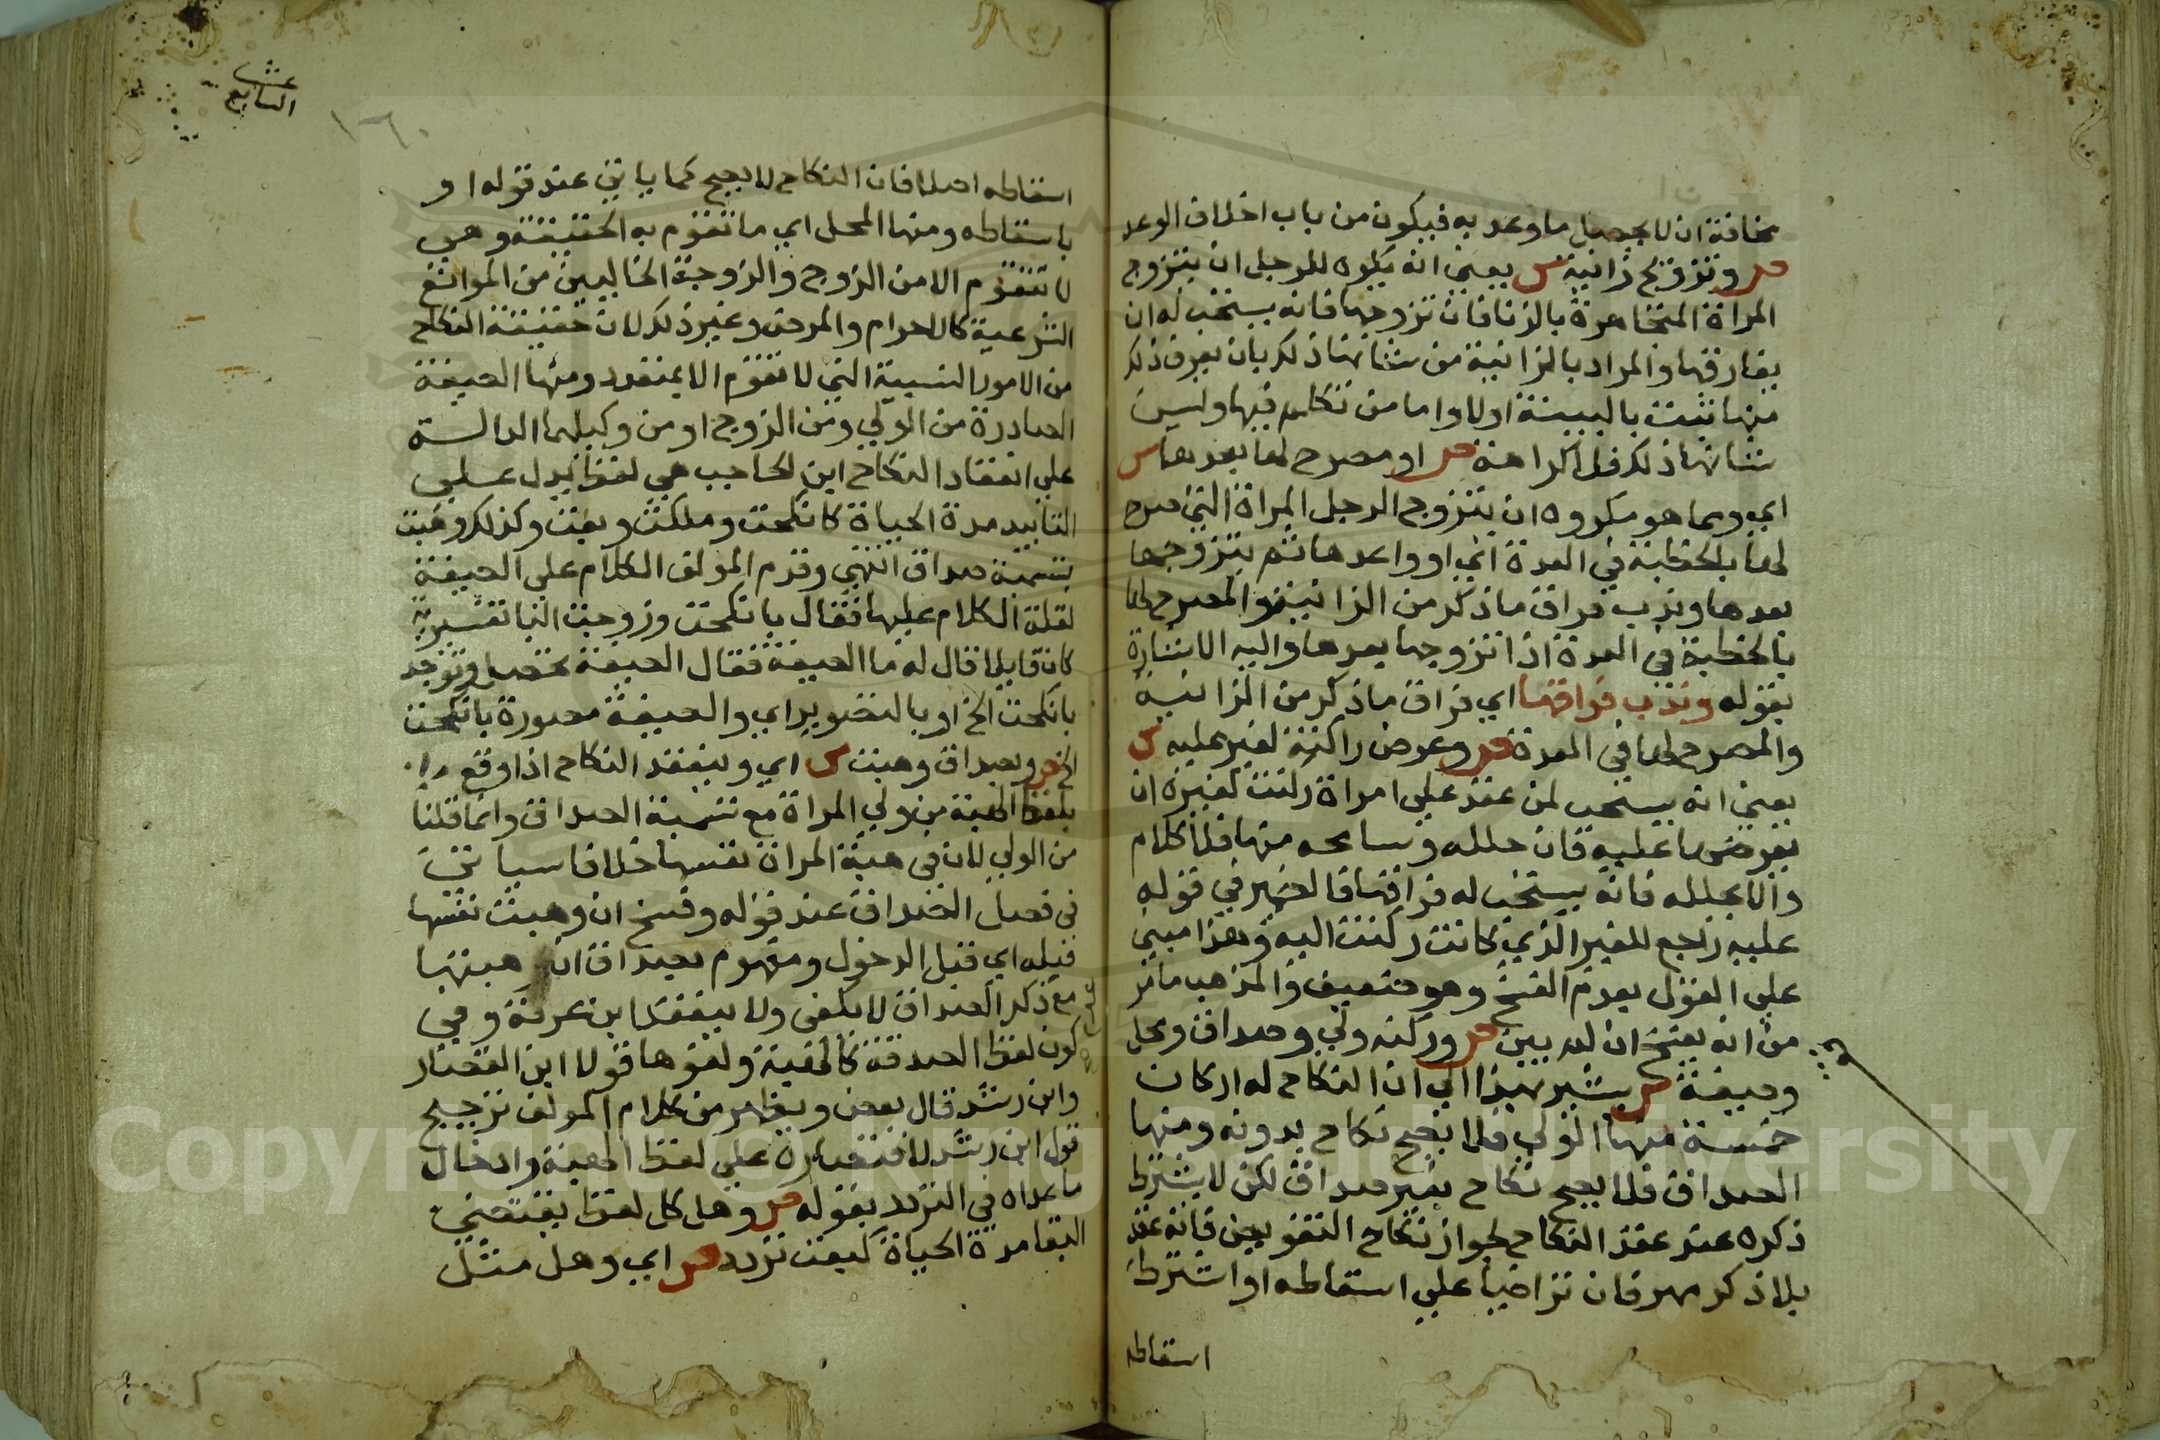 مخافة ان لا يحصل ما وعد به فيكون من باب اخلاف الوعد
ص وتزويج زانية ش يعني انه يكره للرجل ان يتزوج
المراة المتجاهرة بالزنا فان تزوجها فانه يستحب له ان
يفارقها والمراد بالزانية من شانها ذلك بان يعرف ذلك
منها ثبت بالبينة اولا واما من تكلم فيها وليس
شانها ذلك فلا كراهة ص او مصرح لها بعدها ش
اي ومما هو مكروه ان يتزوج الرجل المراة التي صرح
لها بالخطبة في العدة اي او واعدها ثم يتزوجها
بعدها وندب فراق ما ذكر من الزانية والمصرح لها
بالخطبة في العدة اذا تزوجها بعدها واليه الاشارة
بقوله وندب فراقها اي فراق ما ذكر من الزانية
والمصرح لها في العدة ص وعرض راكنة لغير عليه ش
يعني انه يستحب لمن عقد على امراة ركنت لغيره ان
يعرضها عليه فان حلله وسامحه منها فلا كلام
والا يحلله فانه يستحب له فراقها فالضمير في قوله
عليه راجع للغير الذي كانت ركنت اليه وهذا مبني
على القول بعدم الفسخ وهو ضعيف والمذهب ما مر
من انه يفسخ ان لم يبن ص وركنه ولي وصداق ومحل
وصيغة ش يشير بهذا الي ان النكاح له اركان
خمسة منها الولي فلا يصح نكاح بدونه ومنها
الصداق فلا يصح نكاح بغير صداق لكن لا يشترط
ذكره عند عقد النكاح لجواز نكاح التفويض فانه عقد
بلا ذكر مهر فان تراضيا علي اسقاطه او اشترط
اسقاطه
السابع
عشر
١٦٠
اسقاطه اصلا فان النكاح لا يصح كما ياتي عند قوله او
باسقاطه ومنها المحل اي ما تقوم به الحقيقة وهي
لا تتقوم الا من الزوج والزوجة الخاليين من الموانع
الشرعية كالاحرام والمرض وغير ذلك لان حقيقة النكاح
من الامور النسبية التي لا تقوم الا بمتعدد ومنها الصيغة
الصادرة من الولي ومن الزوج او من وكيلهما الدالة
على انعقاد النكاح ابن الحاجب هي لفظ يدل علي
التابيد مدة الحياة كانكحت وملكت وبعت وكذلك وهبت
بتسمية صداق انتهي وقدم المولف الكلام على الصيغة
لقلة الكلام عليها فقال بانكحت وزوجت البا تفسيرية
كان قايلا قال له ما الصيغة فقال الصيغة تحصل وتوجد
بانكحت الخ او بالتصوير اي والصيغة مصورة بانكحت
الخ ص وبصداق وهبت ش اي وينعقد النكاح اذا وقع
بلفظ الهبة من ولي المراة مع تسمية الصداق وانما قلنا
من الولي لان في هبة المراة نفسها خلافا سياتي
في فصل الصداق عند قوله وفسخ ان وهبت نفسها
قبله اي قبل الدخول ومفهوم بصداق ان وهبتها
مع ذكر الصداق لا يكفي ولا ينعقد ابن عرفة وفي
كون لفظ الصدقة كالهبة ولغوها قولا ابن القصار
وابن رشد قال بعض ويظهر من كلام المولف ترجيح
قول ابن رشد لاقتصاره علي لفظ الهبة وادخال
ما عداه في التردد بقوله ص وهل كل لفظ يقتضي
البقا مدة الحياة كبعت تردد ش اي وهل مثل